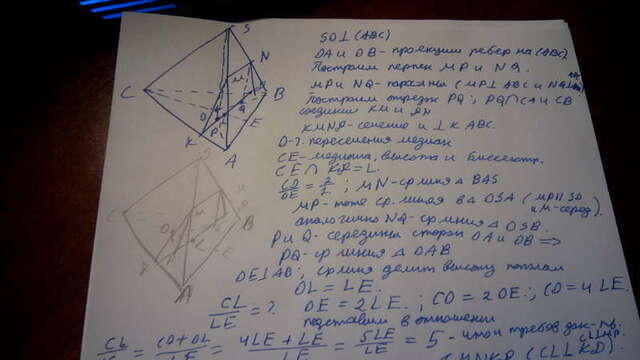 SO⊥(ABC)
OA и OB - проекции ребер на (ABC).
Построим перпен MP и NQ.
MP и NQ - парал-ны (MP⊥ABC и NQ⊥
Построим отрезк PQ; PQ∩CA и CB
соединим KM и
KMNR - сечение и ⊥ к ABC.
O - т. пересечения медиан
CE - медиана, высота и биссектр.
CE∩KR = L.
CO/OE = 2/1; MN - ср линия △ BAS
MP - тоже ср. линия в △ OSA (MP∥SO и M-серед).
аналогично NQ - ср линия △ OSB.
P и Q - середины сторон OA и OB =>
PQ - ср линия △ OAB
OE⊥AB; ср линия делит высоту пополам
OL = LE.
CL/LE = ? OE = 2LE; CO = 2OE; CO = 4LE.
подставим в отношении
CL/LE = (CO+OL)/LE = (4LE+LE)/LE = 5LE/LE = 5 - что и требов. док-ть.
S
N
M
C
B
O
Q
P
L
E
K
A
S
C
M
O
B
L
E
K
A